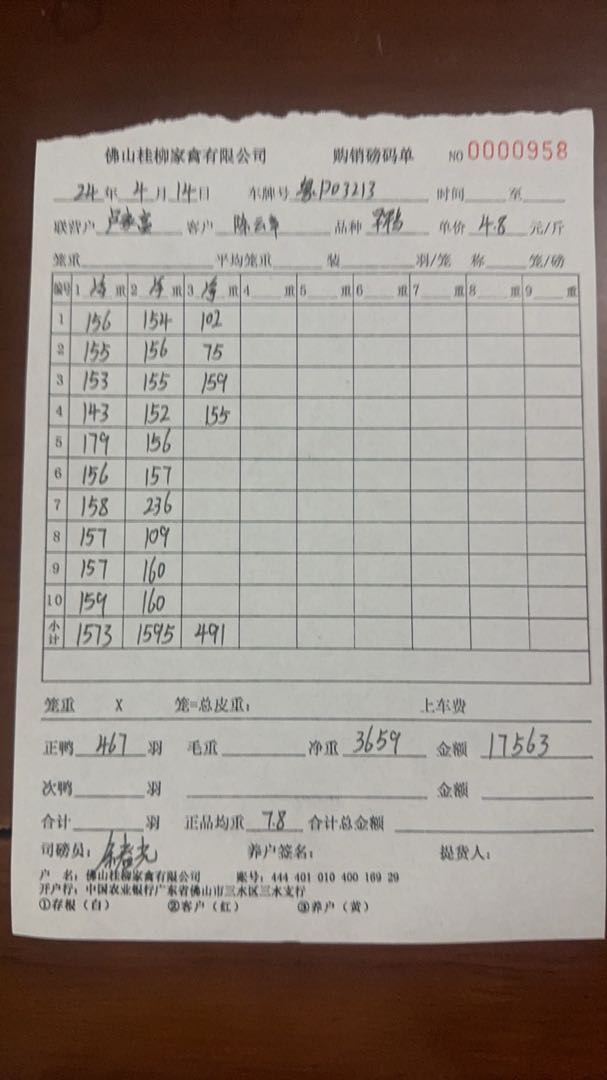 佛山桂柳家禽有限公司 购销磅码单 NO 0000958
24 年 4 月 14 日 车牌号 粤P03213 时间 至
联营户 客户 陈云年 品种 单价 4.8 元/斤
笼重 平均笼重 装 羽/笼 称 笼/磅
编号 1 净 重 2 净 重 3 净 重 4 重 5 重 6 重 7 重 8 重 9 重
1 156 154 102
2 155 156 75
3 153 155 159
4 143 152 155
5 179 156
6 156 157
7 158 236
8 157 109
9 157 160
10 159 160
小计 1573 1595 491
笼重 X 笼=总皮重: 上车费
正鸭 467 羽 毛重 净重 3659 金额 17563
次鸭 羽 金额
合计 羽 正品均重 7.8 合计总金额
司磅员: 养户签名: 提货人:
户 名: 佛山桂柳家禽有限公司 账号: 444 401 010 400 169 29
开户行: 中国农业银行广东省佛山市三水区三水支行
①存根(白) ②客户(红) ③养户(黄)